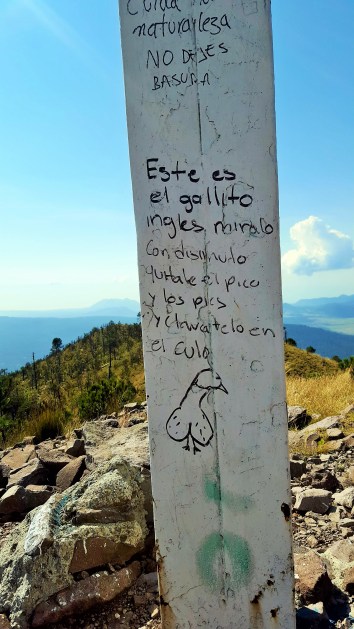 Cuida
naturaleza
NO DEJES
BASURA
Este es
el gallito
ingles miralo
Con disimulo
quitale el pico
y los pies
y clavatelo en
el culo